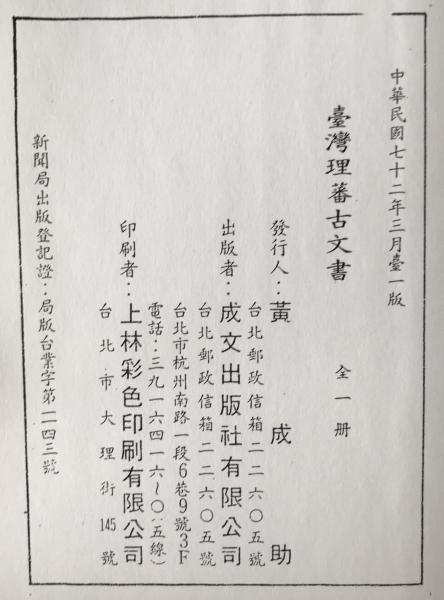 中華民國七十二年三月臺一版
臺灣理蕃古文書　全一册
發行人：黃成助
台北郵政信箱二二六〇五號
出版者：成文出版社有限公司
台北郵政信箱二二六〇五號
台北市杭州南路一段6巷9號3F
電話：三九一六四一六～〇（五線）
印刷者：上林彩色印刷有限公司
台北市大理街145號
新聞局出版登記證：局版台業字第一一四三號